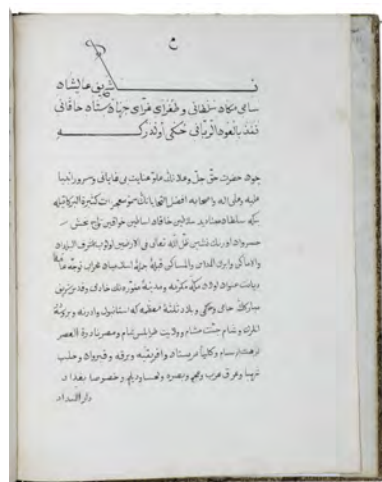 شریف عالیشان
سامی مکان سلطانی و طغرای غرای جهان ستان خاقانی
نفذ بالعون الربانی حکمی اولدر که
چون حضرت حق جل و علانك علو عنایت بی غایاتی و سرور انبیا
علیه و علی اله و اصحابه افضل التحیاتنك سمو معجزات کثیرة البرکاتیله
بنکه سلطان سلاطین خاقان اساطین خواقین تاج بخش
خسروان اورنك نشین ظل الله تعالی فی الارضین اولوب اشرف البلدان
والاماکن و ابرك المدائن والمساکن قبلۀ جملۀ اسلامیان محراب توجه عامۀ
دیانت عنوان اولان مکۀ مکرمه و مدینۀ منوره نك خادمی و قدس شریف
مبارکك حامی و حاکمی و بلاد ثلثۀ معظمه که استانبول و ادرنه و بروسۀ
و شام جنت مشام و ولایت طرابلس شام و مصر نادرة العصر
و کلیا عربستان و افریقیه و برقه و قیروان و حلب
شهبا و عراق عرب و عجم و بصره و لحسا و دیلم و خصوصا بغداد
دار السداد